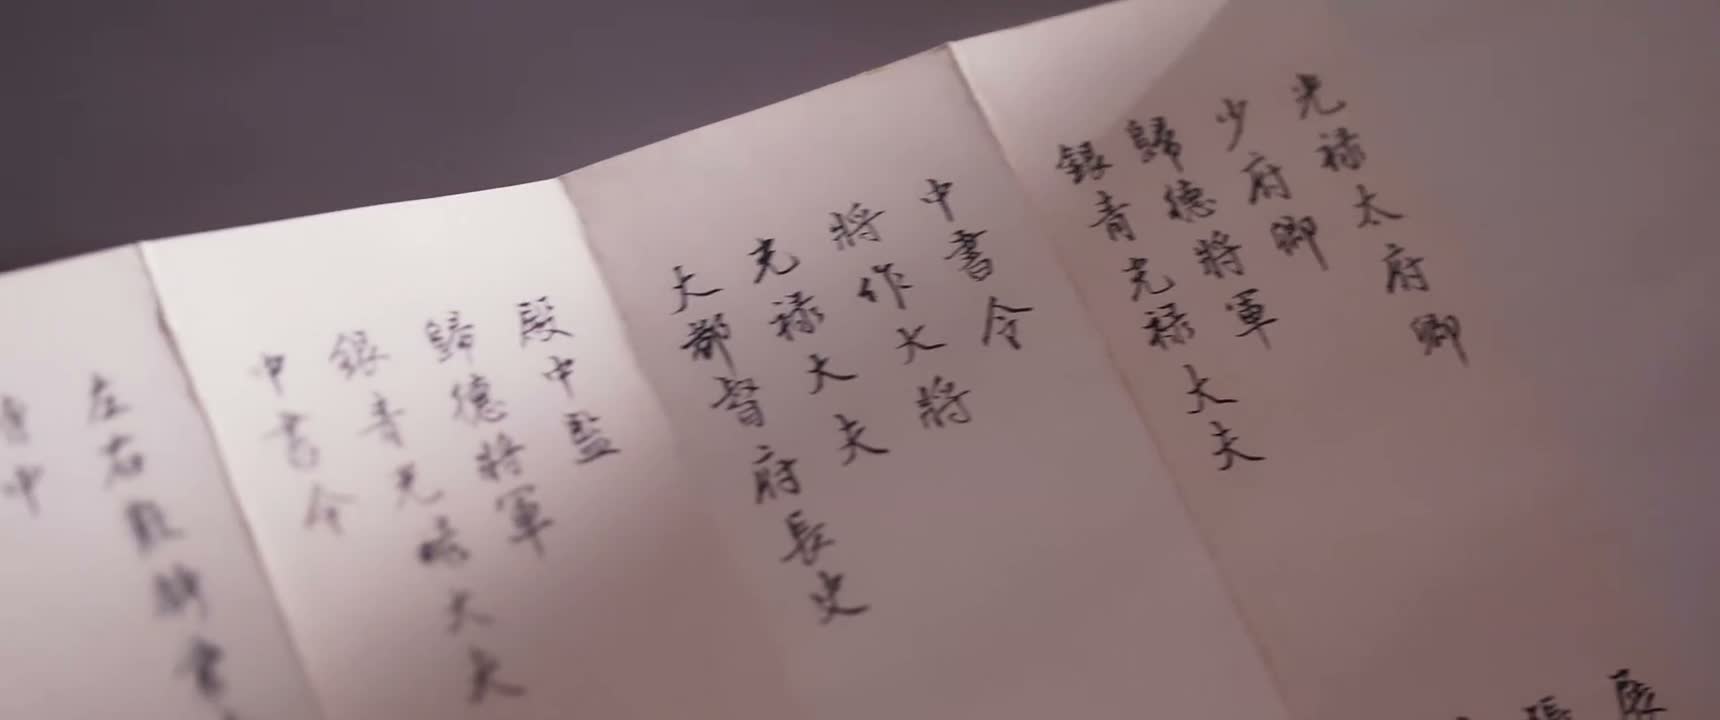 光禄太府卿
少府卿
歸德將軍
銀青光禄大夫
中書令
將作大將
光禄大夫
大都督府長史
殿中監
歸德將軍
銀青光禄大夫
中書令
左右
中